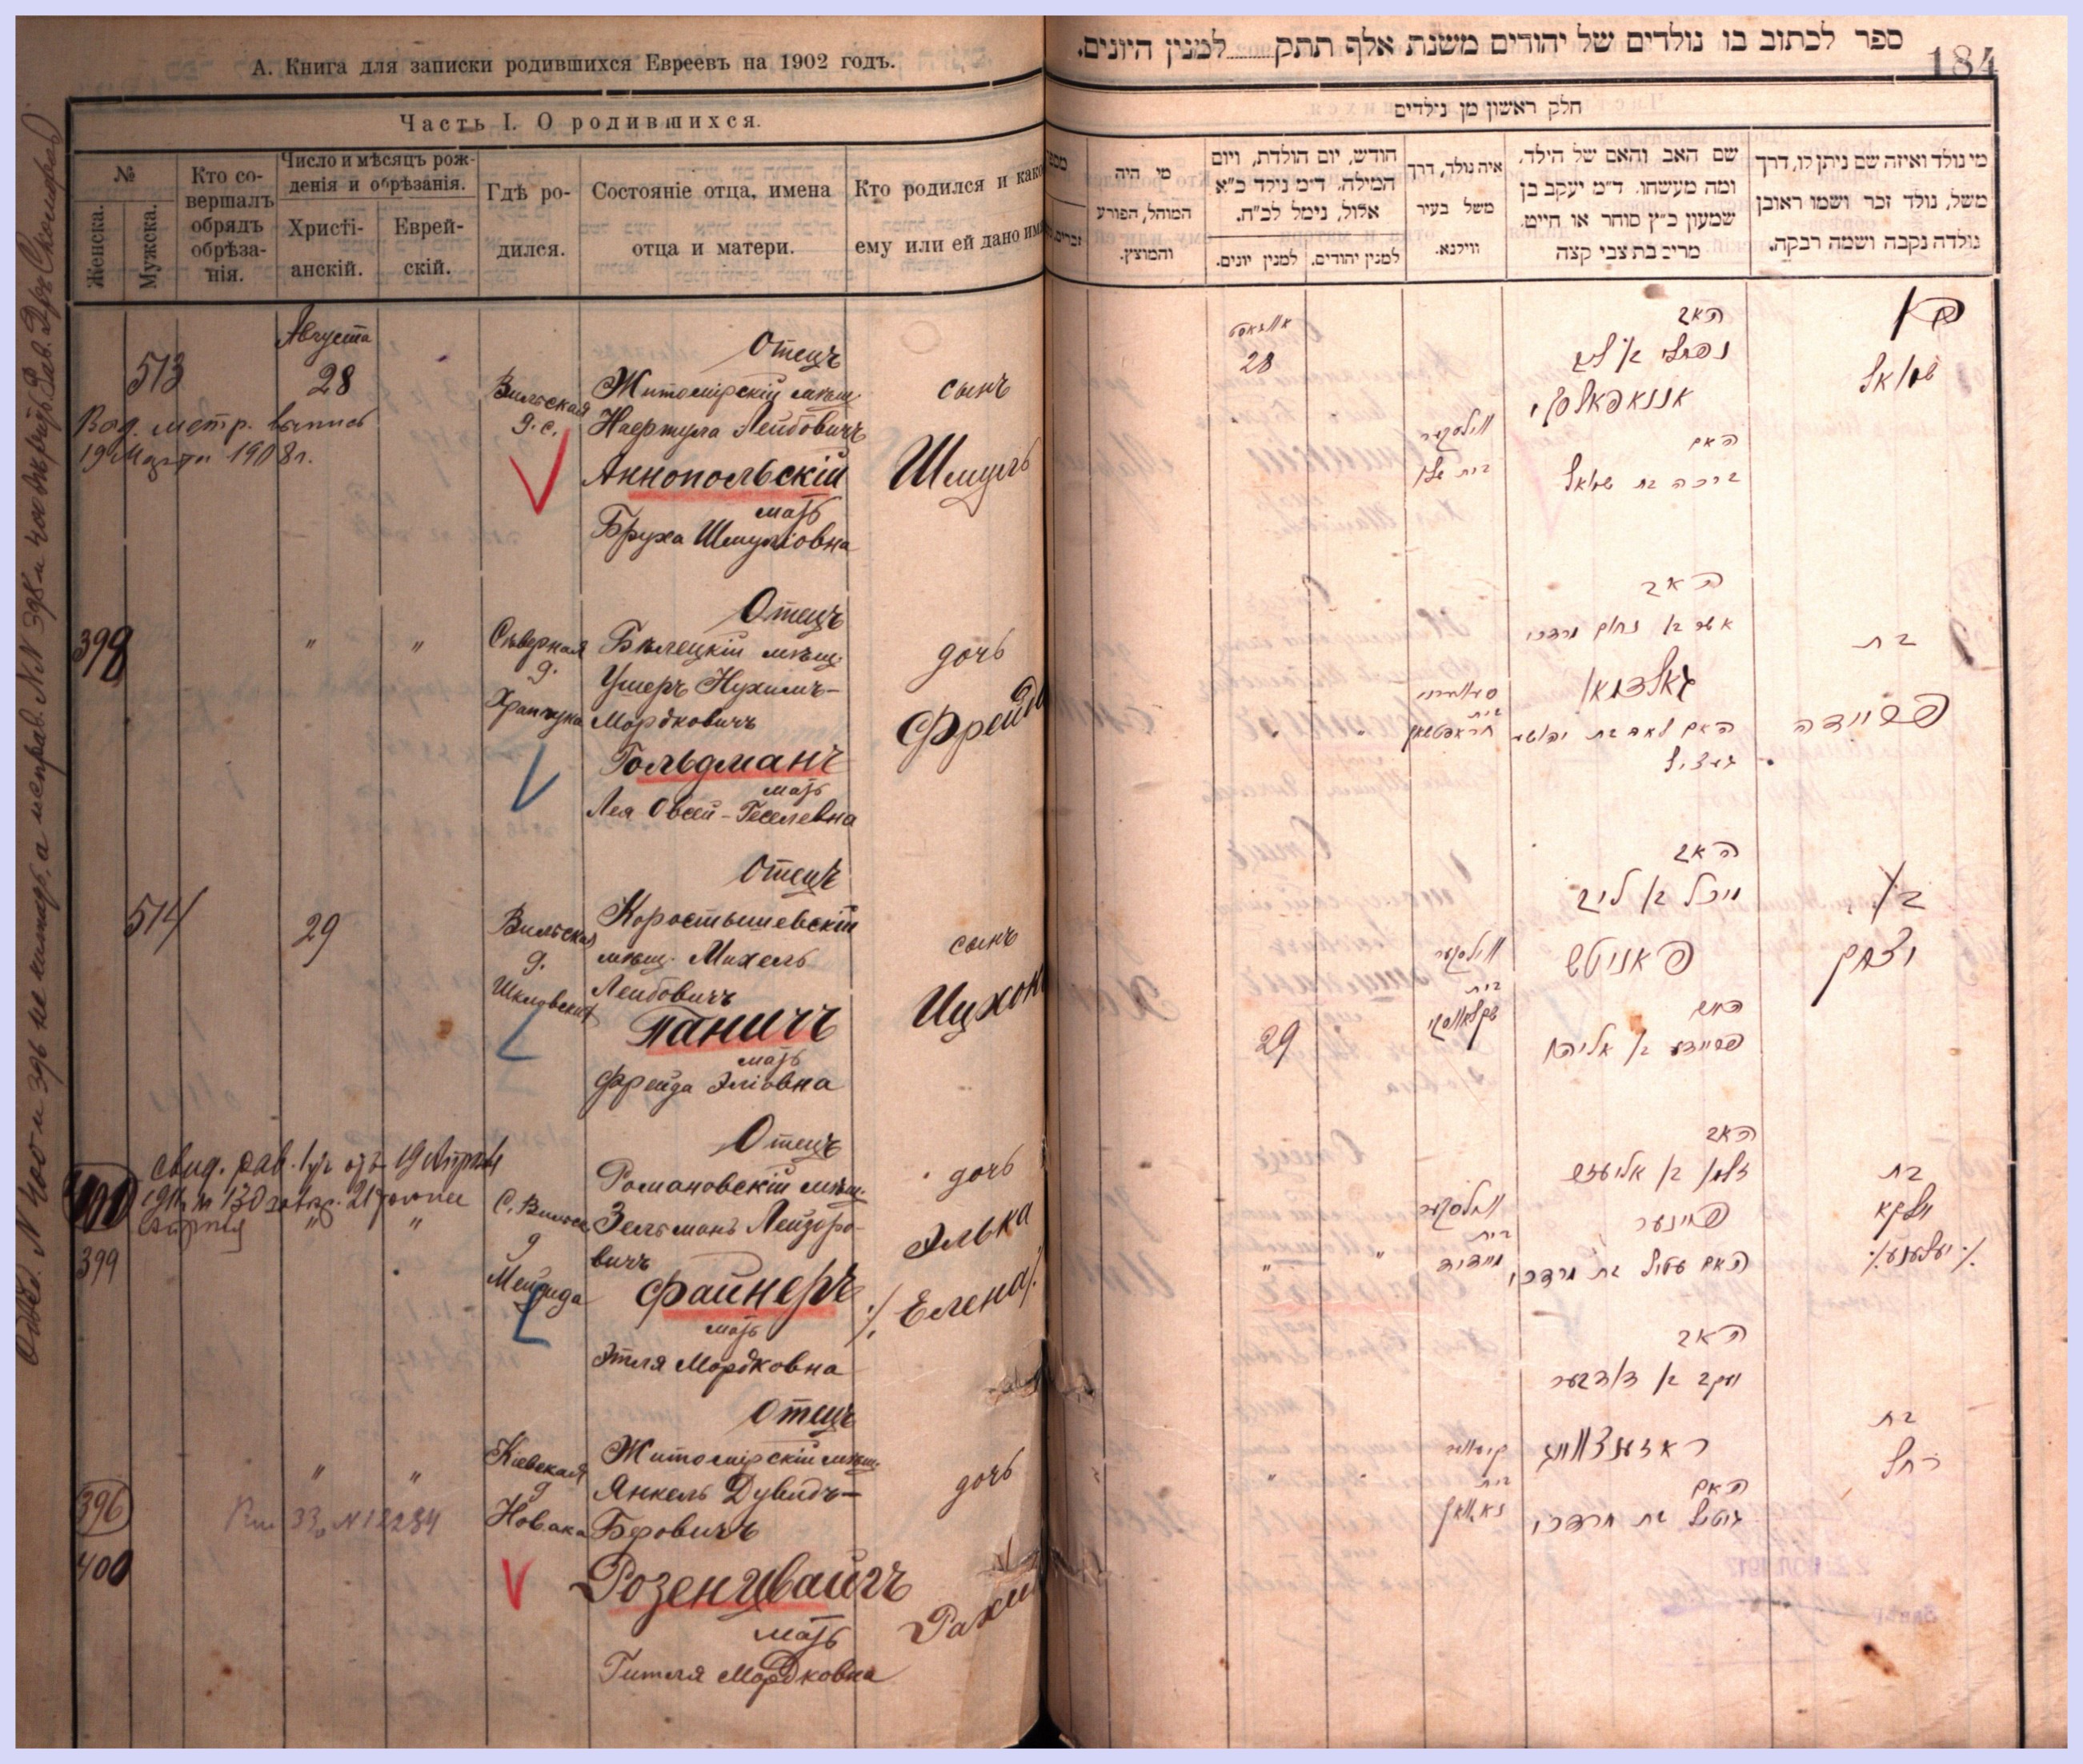 А. Книга для записки родившихся Евреевъ на 1902 годъ.
Часть I. О родившихся.
№
Женска.
Мужска.
Кто со-
вершалъ
обрядъ
обрѣза-
нія.
Число и мѣсяцъ рож-
денія и обрѣзанія.
Христі-
анскій.
Еврей-
скій.
Гдѣ ро-
дился.
Состояніе отца, имена
отца и матери.
Кто родился и како
ему или ей дано им
513
Августа
28
Выд. метр. выпись
19 Марта 1908 г.
Вильская
д. с.
Отецъ
Житомірскій мѣщ.
Лейбовичъ
Аннопольскій
мать
Бруха Шмуліовна
сынъ
Шмуль
398
"
"
Сѣверная
д.
Отецъ
Бѣлецкій мѣщ.
Ушеръ Нухимъ-
Мордковичъ
Гольдманъ
мать
Лея Овсей-Геселевна
дочь
Фрейда
514
29
Вильская
д.
Шкловский
Отецъ
Коростышевскій
мѣщ. Михель
Лейбовичъ
Паничъ
мать
Фрейда Эліовна
сынъ
Ицхокъ
свид. рав. отъ 19
400
399
"
"
С. Вильск
д
Отецъ
Романовскій мѣщ.
Зельманъ Лейзоро-
вичъ
Файнеръ
мать
Этля Мордковна
дочь
Элька
/. Елена ./
396
400
33 N 12234
"
"
Кіевская
д
Новака
Отецъ
Житомірскій мѣщ.
Янкель Дувидъ-
Беровичъ
Розенцвайгъ
мать
Гитля Мордковна
дочь
Рахи
184
ספר לכתוב בו נולדים של יהודים משנת אלף תתק........למנין היונים.
חלק ראשון מן נולדים
מי נולד ואיזה שם ניתן לו, דרך
משל, נולד זכר ושמו ראובן
נולדה נקבה ושמה רבקה.
שם האב והאם של הילד,
ומה מעשהו. ד״מ יעקב בן
שמעון כ״ץ סוחר או חייט,
מרים בת צבי קצה
איה נולד, דרך
משל בעיר
ווילנא.
חודש, יום הולדת, ויום
המילה. ד״מ נילד כ״א
אלול, נימל לכ״ח.
למנין יהודים.
למנין יונים.
מי היה
המוהל, הפורע
והמוצץ.
בן
שמואל
האב
נפתלי בן ליב
אננאפאלסקי
האם
ברכה בת שמואל
ווילסקער
28
בת
פריידה
האב
אשר בן נחום מרדכי
גאלדמאן
האם לאה בת יהושע
"
"
בן
יצחק
האב
מיכל בן ליב
פאניטש
פריידע בן אליהו
ווילסקער
בית
שקלאווסקי
29
בת
עלקא
./ יעלענע /.
האב
זלמן בן אליעזר
פיינער
האם עטיל בת מרדכי
ווילסקער
בית
"
"
בת
רחל
האב
יעקב בן דוד בער
ראזענצווייג
האם
גיטיל בת מרדכי
בית
נאוואק
"